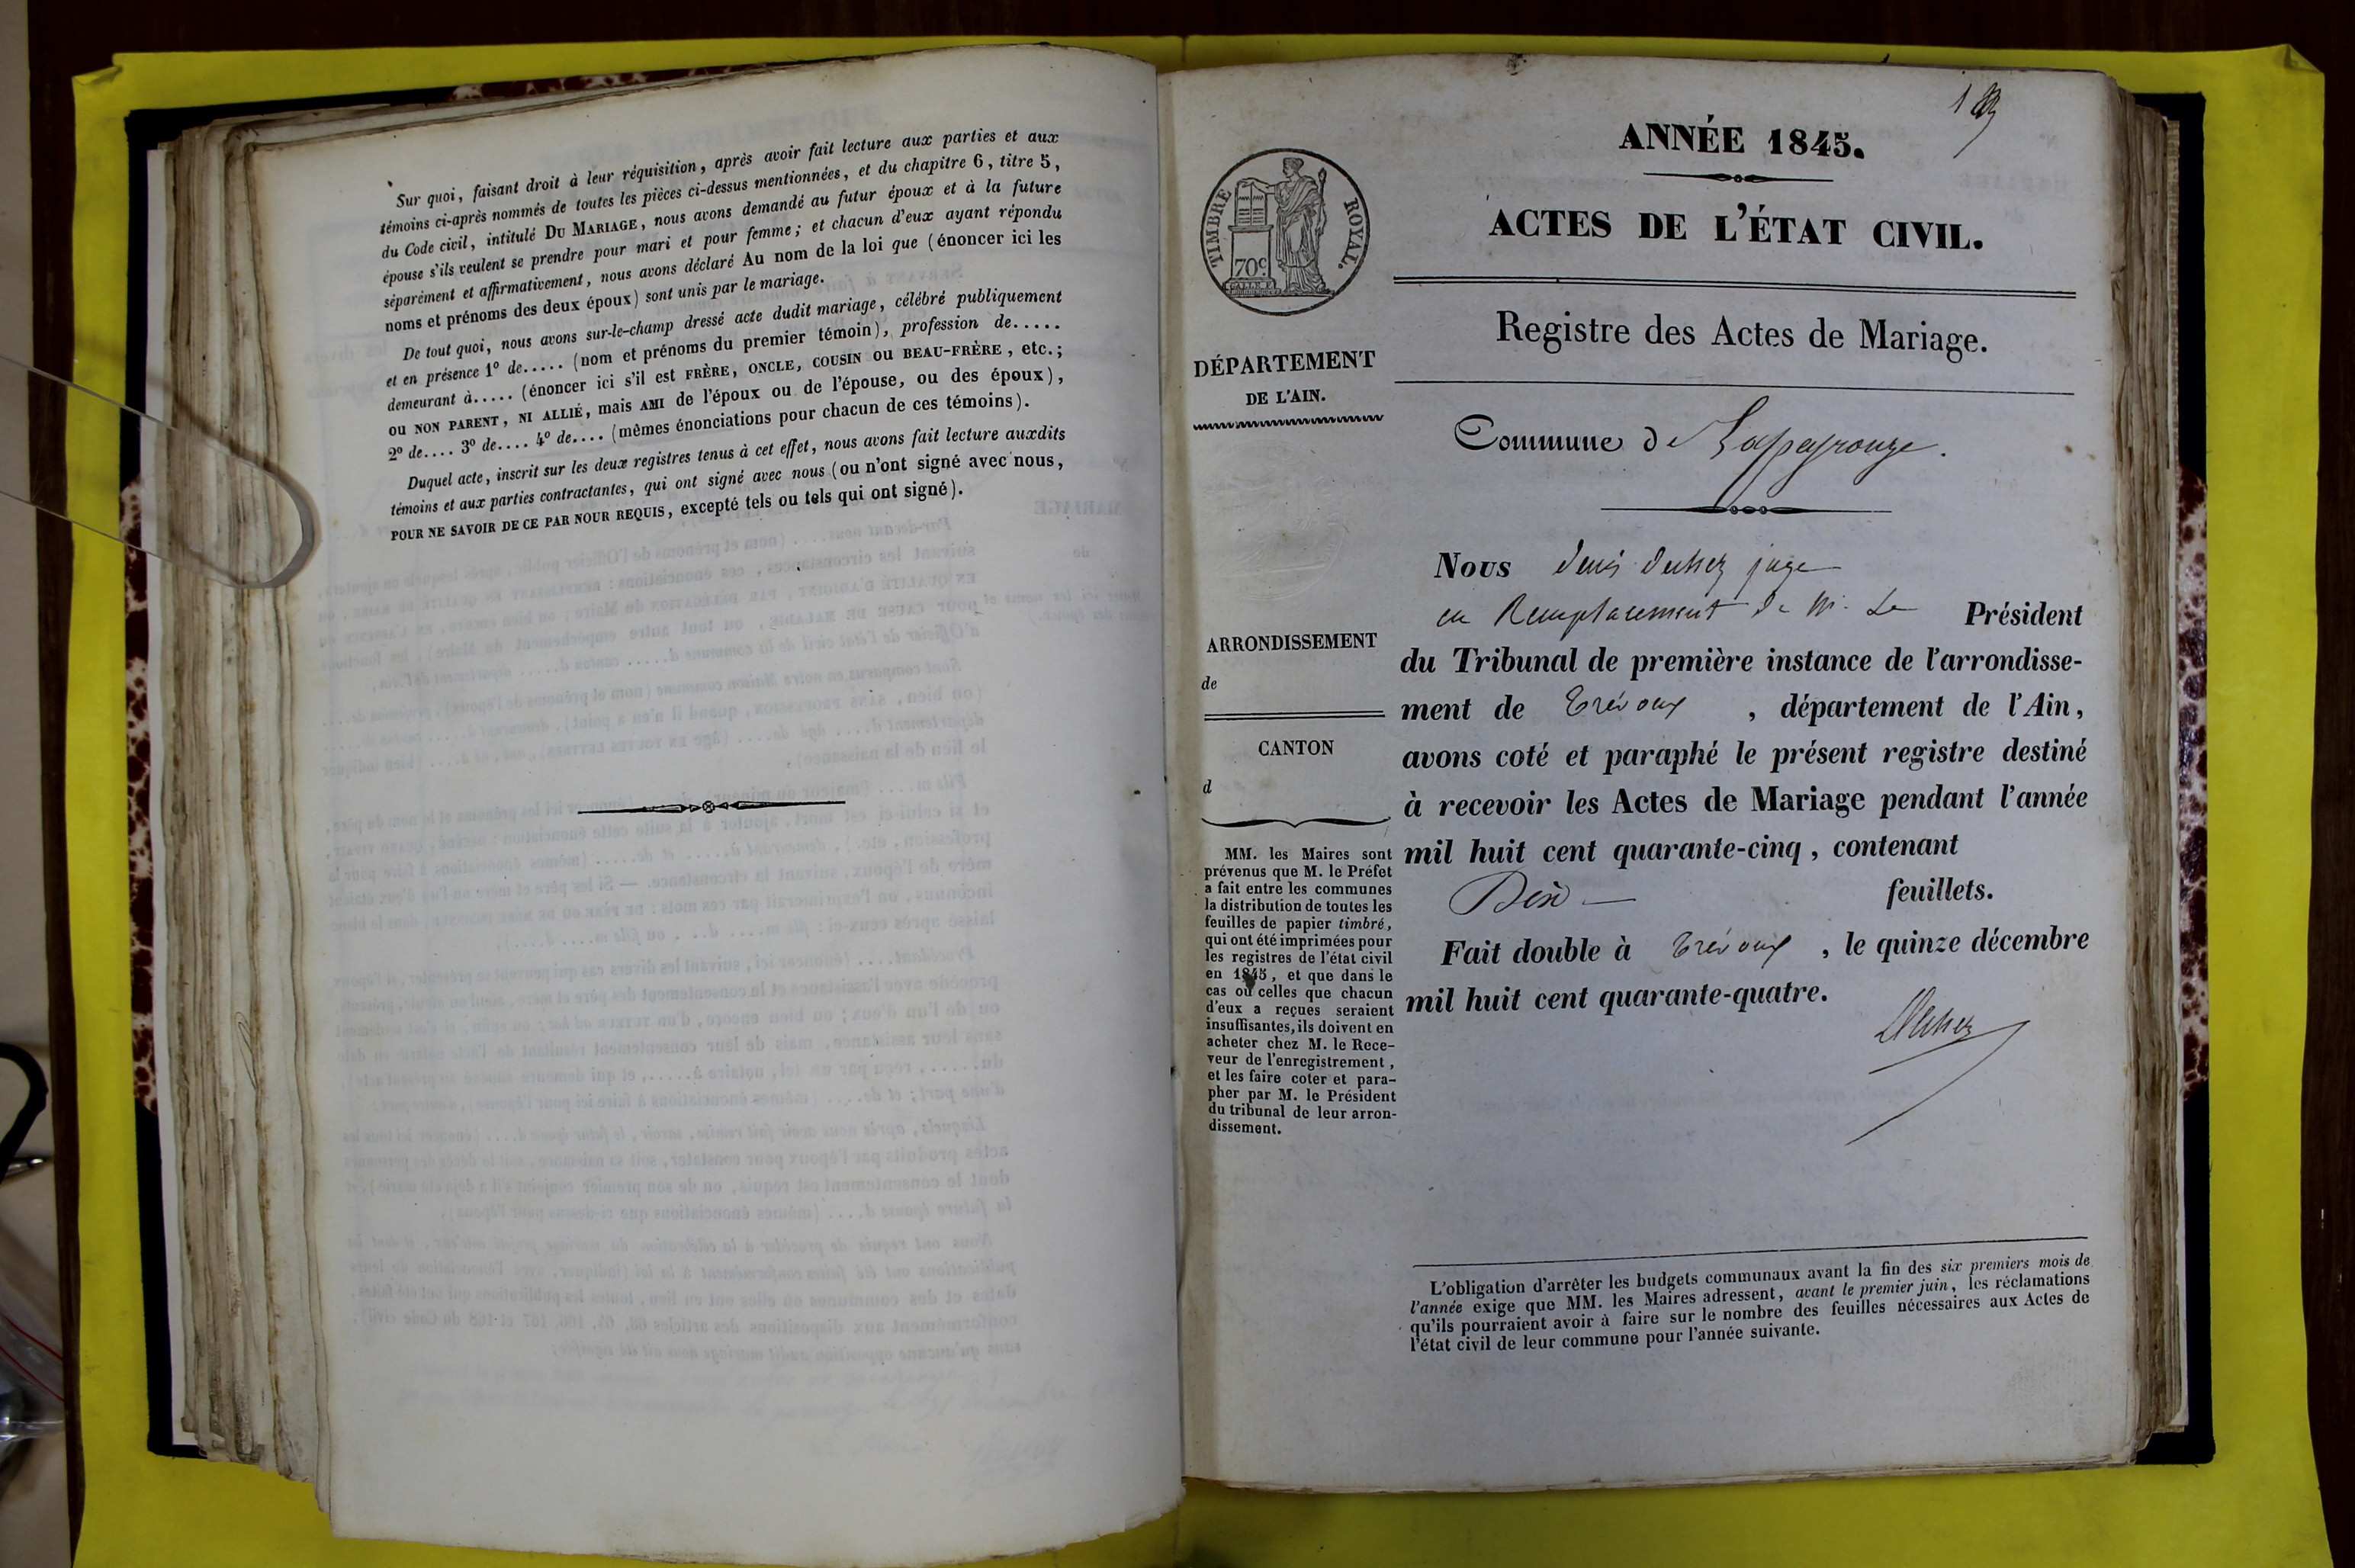 Sur quoi, faisant droit à leur réquisition, après avoir fait lecture aux parties et aux
témoins ci-après nommés de toutes les pièces ci-dessus mentionnées, et du chapitre 6, titre 5,
du Code civil, intitulé DU MARIAGE, nous avons demandé au futur époux et à la future
épouse s'ils veulent se prendre pour mari et pour femme; et chacun d'eux ayant répondu
séparément et affirmativement, nous avons déclaré Au nom de la loi que (énoncer ici les
noms et prénoms des deux époux) sont unis par le mariage.
De tout quoi, nous avons sur-le-champ dressé acte dudit mariage, célébré publiquement
et en présence 1º de..... (nom et prénoms du premier témoin), profession de.....
demeurant à..... (énoncer ici s'il est FRÈRE, ONCLE, COUSIN ou BEAU-FRÈRE, etc.;
ou NON PARENT, NI ALLIÉ, mais AMI de l'époux ou de l'épouse, ou des époux),
2º de.... 3º de.... 4º de.... (mêmes énonciations pour chacun de ces témoins).
Duquel acte, inscrit sur les deux registres tenus à cet effet, nous avons fait lecture auxdits
témoins et aux parties contractantes, qui ont signé avec nous (ou n'ont signé avec nous,
POUR NE SAVOIR DE CE PAR NOUR REQUIS, excepté tels ou tels qui ont signé).
ANNÉE 1845.
ACTES DE L'ÉTAT CIVIL.
Registre des Actes de Mariage.
Commune de Lapeyrouze.
TIMBRE ROYAL.
70c
DÉPARTEMENT
DE L'AIN.
ARRONDISSEMENT
de
CANTON
d
MM. les Maires sont
prévenus que M. le Préfet
a fait entre les communes
la distribution de toutes les
feuilles de papier timbré,
qui ont été imprimées pour
les registres de l'état civil
en 1845, et que dans le
cas où celles que chacun
d'eux a reçues seraient
insuffisantes, ils doivent en
acheter chez M. le Rece-
veur de l'enregistrement,
et les faire coter et para-
pher par M. le Président
du tribunal de leur arron-
dissement.
Nous denis duhez juge
en Remplacement de M. Le Président
du Tribunal de première instance de l'arrondisse-
ment de Trévoux, département de l'Ain,
avons coté et paraphé le présent registre destiné
à recevoir les Actes de Mariage pendant l'année
mil huit cent quarante-cinq, contenant
feuillets.
Fait double à Trévoux, le quinze décembre
mil huit cent quarante-quatre.
L'obligation d'arrêter les budgets communaux avant la fin des six premiers mois de
l'année exige que MM. les Maires adressent, avant le premier juin, les réclamations
qu'ils pourraient avoir à faire sur le nombre des feuilles nécessaires aux Actes de
l'état civil de leur commune pour l'année suivante.